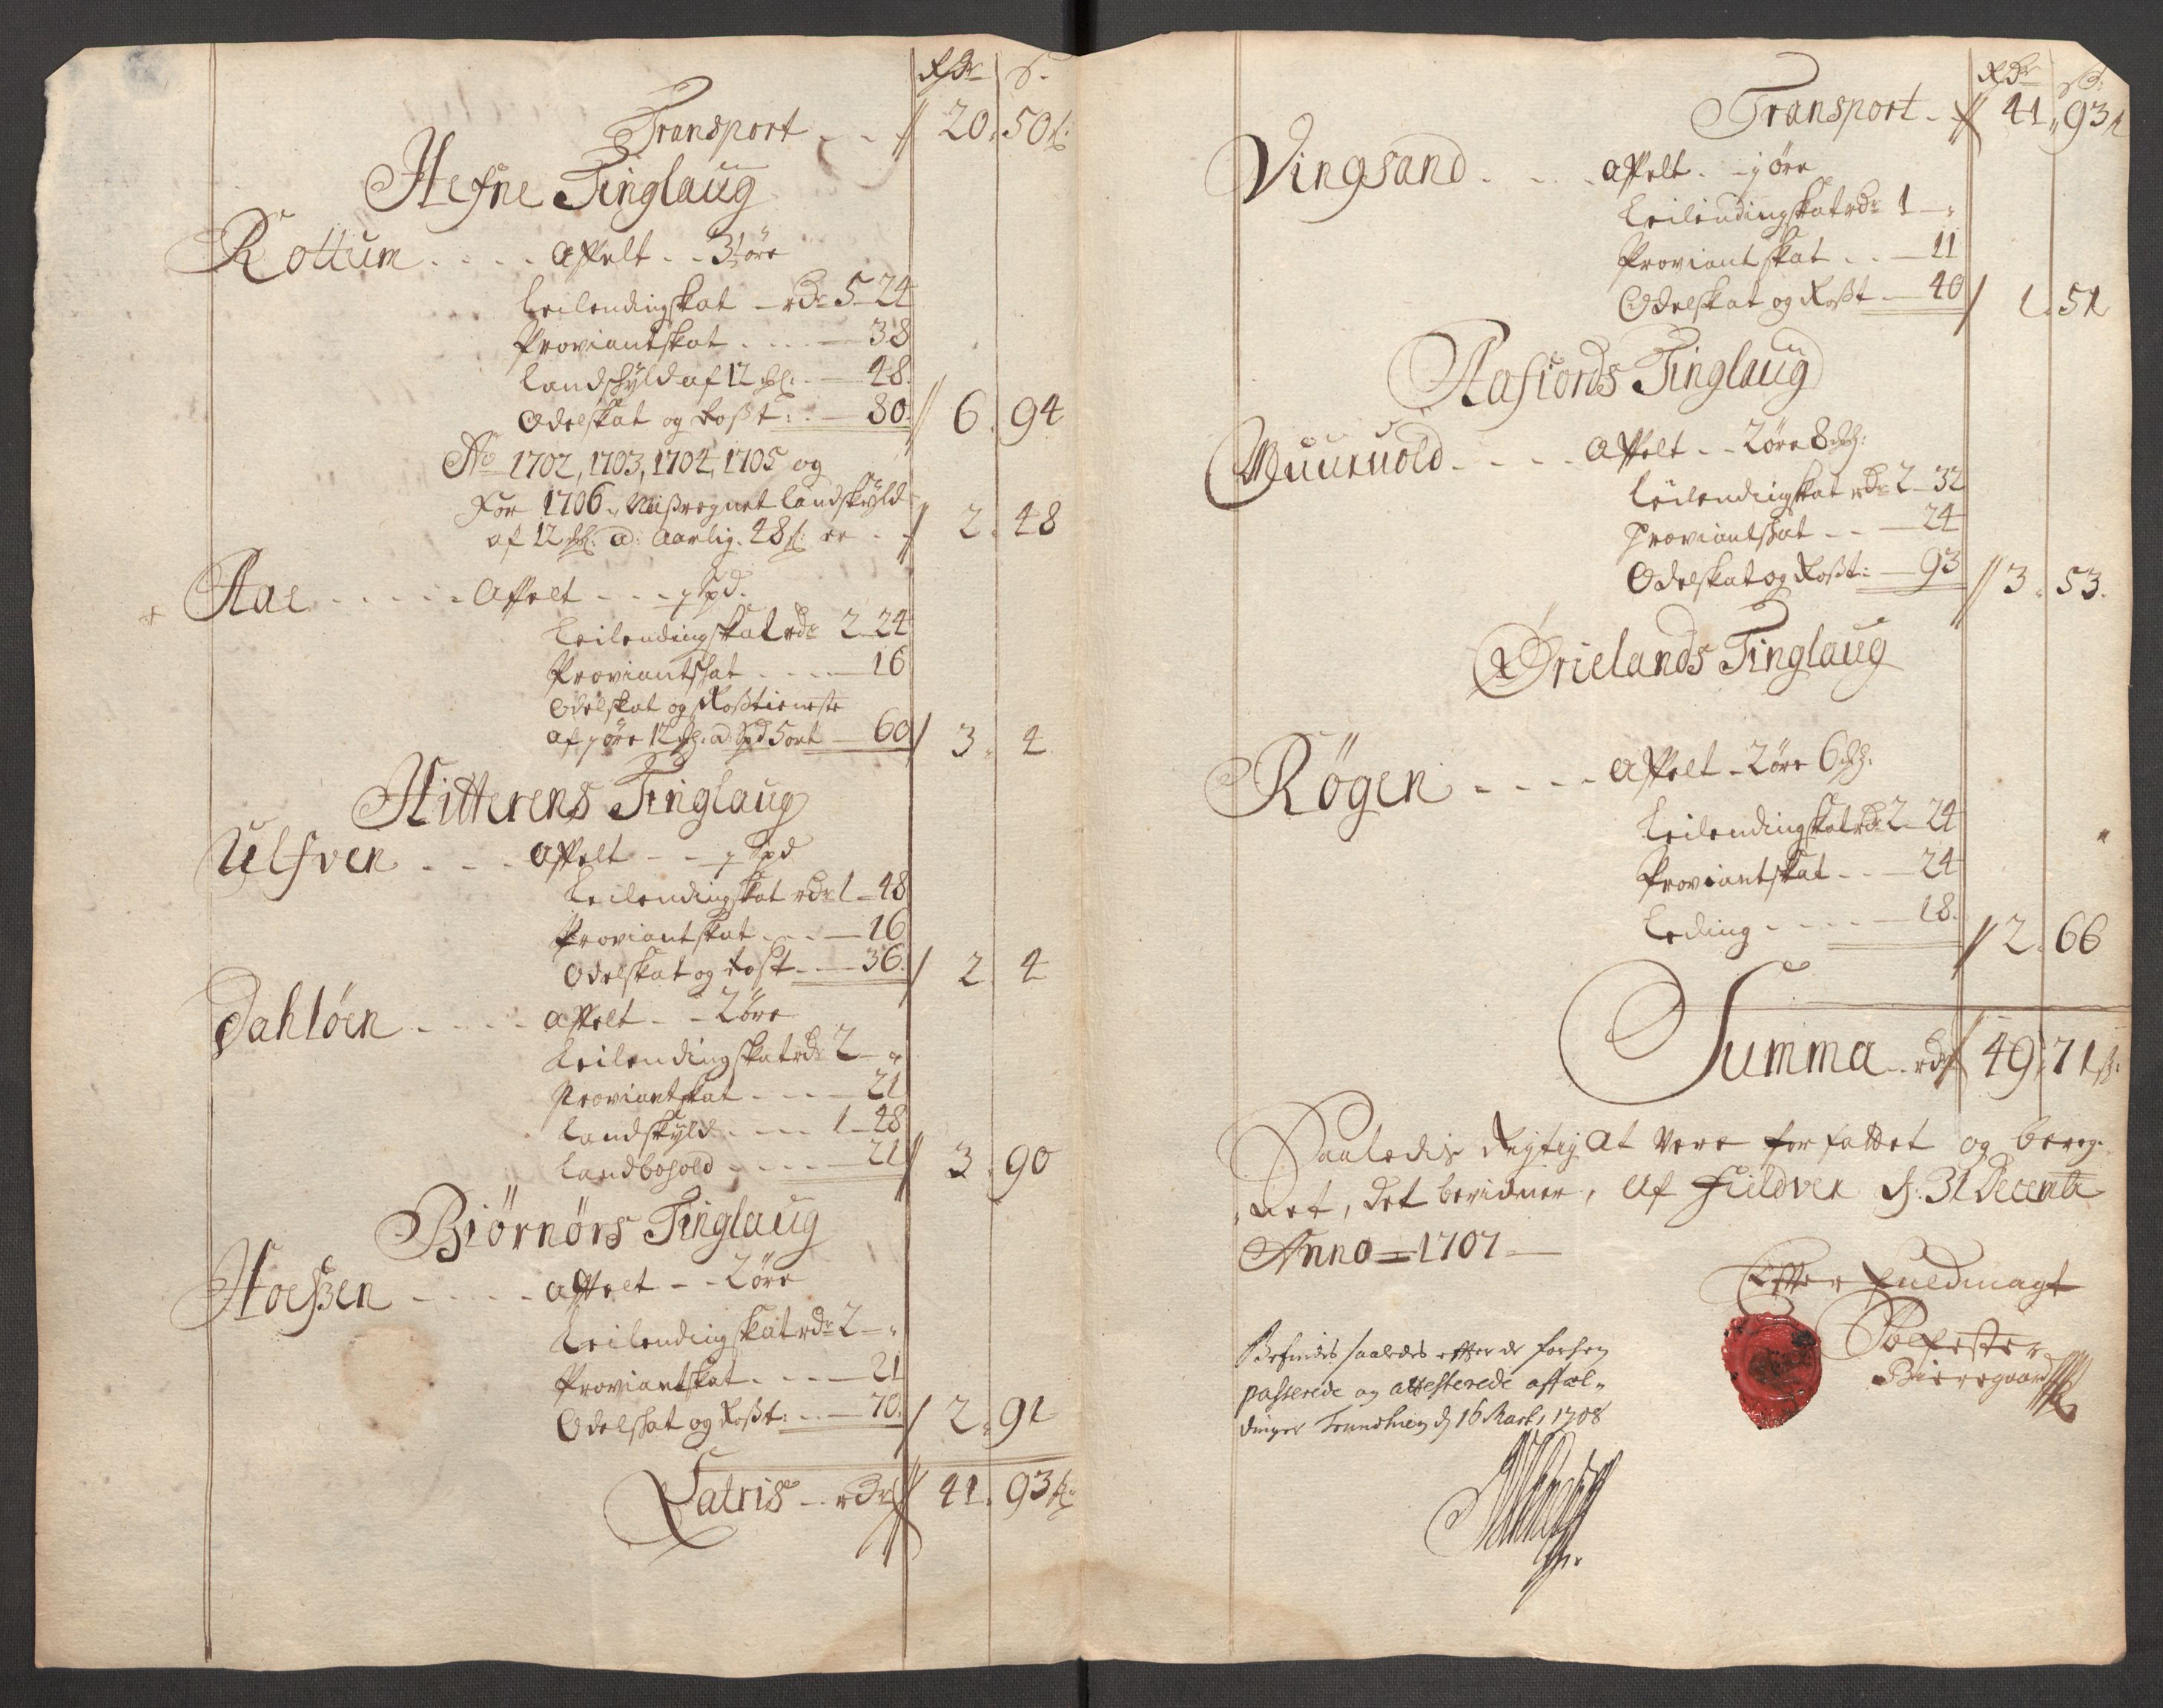 Rdr ß.
Transport - - 20. 50 ß.
Hefne Tinglaug
Rottum - - - - Affelt - - 3½ øre
Leilendingskat - rdr 5 - 24
Proviantskat - - - - 38
Landskyld af 12 - 48.
Odelskat og Roßt: - - 80. 6. 94
Ao 1702, 1703, 1704, 1705 og
For 1706. Mißregnet Landskyld
af 12 a: Aarlig. 48 ß: er - 2. 48
Aae - - - - - Affelt - - - 1 Spd.
Leilendingskat rdr 2 - 24
Proviantskat - - - - 16
Odelskat og Roßtieneste
af 1 øre 12 a Spd 5 ort - 60 3. 4
Hitterens Tinglaug
Ulfven - - - Affelt - - 1 Spd
Leilendingskat rdr 1 - 48
Proviantskat - - - 16
Odelskat og Roßt - - 36. 2. 4
Dahløen - - - - Affelt - - 2 øre
Leilendingskat rdr 2 - "
Proviantskat - - - 21
Landskyld - - - 1 - 48
Landbohold - - - - 21 3. 90
Biørnørs Tinglaug
Hoeßen - - - - Affelt - - 2 øre
Leilendingskat rdr 2 - "
Proviantskat - - - - 21
Odelskat og Roßt: - - 70. 2. 91
Latris - - rdr 41. 93 ß.
Rdr ß:
Transport - 41. 93 ß
Vingsand - - - - Affelt. - 1 øre
Leilendingskat rdr 1 - "
Proviantskat - - - 11
Odelskat og Roßt - 40 1. 51
Aafiords Tinglaug
Muurvold - - - - Affelt - - 2 øre 8
Leilendingskat rdr 2 - 32
Proviantskat - - - 24
Odelskat og Roßt: - 93 3. 53.
Ørielands Tinglaug
Røgen - - - - Affelt - 2 øre 6
Leilendingskat rdr 2 - 24 "
Proviantskat - - - 24
Leding - - - - - 18. 2. 66
Summa - rdr 49. 71 ß:
Saaledis Rigtig at Vere forfattet og bereg-
net, det bevidner, Af Fieldven d. 31 Decemb:
Anno = 1707 -
Effter Fuldmagt
Bieregaard
Befindis saaledes effter de forhen
passerede og attesterede afftæl-
dinger Trundhiem d 16 Mart: 1708